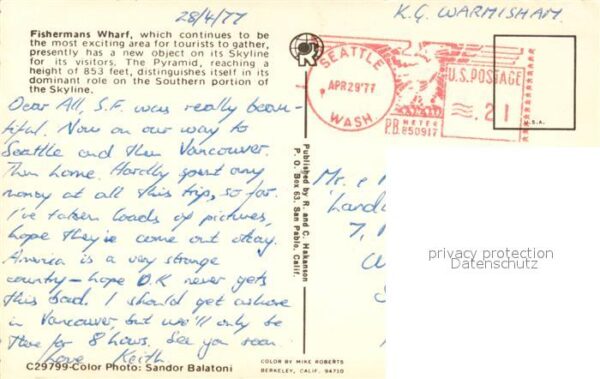 28/4/77
K.G. WARMISHAM.
Fishermans Wharf, which continues to be
the most exciting area for tourists to gather,
presently has a new object on its Skyline
for its visitors. The Pyramid, reaching a
height of 853 feet, distinguishes itself in its
dominant role on the Southern portion of
the Skyline.
SEATTLE
APR 29'77
WASH
U.S. POSTAGE
.21
METER
P.B. 850917
U.S.A.
Dear All, S.F. was really beau-
tiful. Now on our way to
Seattle and then Vancouver.
Then home. Hardly spent any
money at all this trip, so far.
I've taken loads of pictures,
hope they've come out okay.
America is a very strange
country - hope U.K never gets
this bad. I should get ashore
in Vancouver, but we'll only be
there for 8 hours. See you soon.
Love Keith
C29799-Color Photo: Sandor Balatoni
Published by R. and C. Hakanson
P. O. Box 63, San Pablo, Calif.
COLOR BY MIKE ROBERTS
BERKELEY, CALIF. 94710
Mr. &
7,
privacy protection
Datenschutz